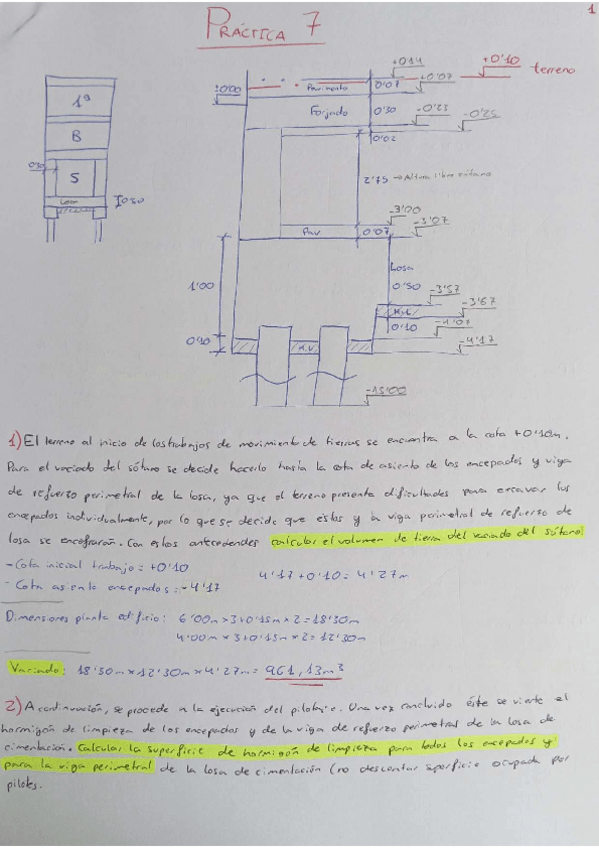 1
PRÁCTICA 7
+0'14
+0'10
terreno
±0'00
Pavimento
0'07
+0'07
1ª
Forjado
0'30
-0'23
-0'25
B
0'02
S
2'75 → Altura libre sótano
Losa
-3'00
-3'07
Pav
0'07
Losa
1'00
0'50
-3'57
-3'67
H.L.
0'10
-4'07
0'10
H.L.
-4'17
-15'00
1) El terreno al inicio de los trabajos de movimiento de tierras se encuentra a la cota +0'10m.
Para el vaciado del sótano se decide hacerlo hasta la cota de asiento de los encepados y viga
de refuerzo perimetral de la losa, ya que el terreno presenta dificultades para excavar los
encepados individualmente, por lo que se decide que estos y la viga perimetral de refuerzo de
losa se encofrarán. Con estos antecedentes calcular el volumen de tierra del vaciado del sótano:
- Cota inicial trabajo = +0'10
4'17+0'10 = 4'27m
- Cota asiento encepados = -4'17
Dimensiones planta edificio: 6'00m × 3+0'15m × 2 = 18'30m
4'00m × 3+0'15m × 2 = 12'30m
Vaciado: 18'30m × 12'30m × 4'27m = 961,13m³
2) A continuación, se procede a la ejecución del pilotaje. Una vez concluido éste se vierte el
hormigón de limpieza de los encepados y de la viga de refuerzo perimetral de la losa de
cimentación. Calcular la superficie de hormigón de limpieza para todos los encepados y
para la viga perimetral de la losa de cimentación (no descontar superficie ocupada por
pilotes.